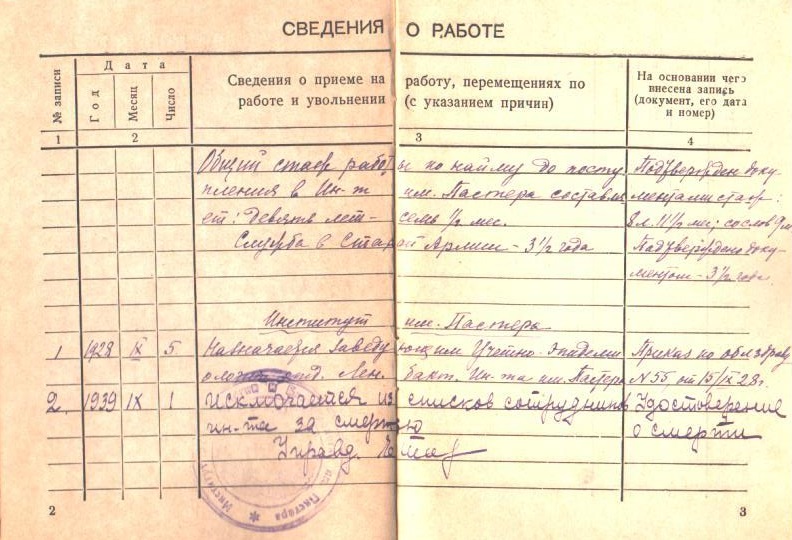 СВЕДЕНИЯ О РАБОТЕ
№ записи
Дата
Год
Месяц
Число
Сведения о приеме на работу, перемещениях по
работе и увольнении (с указанием причин)
На основании чего
внесена запись
(документ, его дата
и номер)
1 2 3 4
Общий стаж работы по найму до посту- Подтвержден доку-
пления в Ин-т им. Пастера составля- ментами стаж:
ет: Девять лет - семь ½ мес. 8 л. 11½ мес; со слов
Служба в Старой Армии - 3½ года Подтверждено доку-
ментом - 3½ года
Институт им. Пастера
1 1928 IX 5 Назначается Заведующим Учетно-Эпидеми- Приказ по облздраву
ологич. отд. Лен. Бакт. Ин-та им. Пастера №55 от 15/IX 28 г.
2. 1939 IX 1 исключается из списков сотрудников Удостоверение
ин-та за смертью о смерти
Управд.
Пастера
2
3